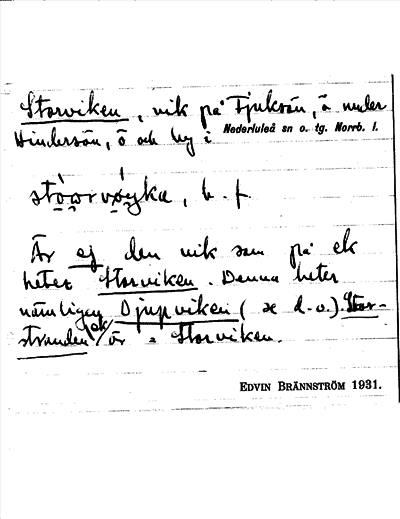 Storviken, vik på Tjuksön, ö under
Hindersön, ö och by i Nederluleå sn o. tg. Norrb. l.
b. f.
Är ej den vik som på ek
heter Storviken. Denna heter
nämligen Djupviken (se d.o.). Stor-
stranden ek är = Storviken.
EDVIN BRÄNNSTRÖM 1931.